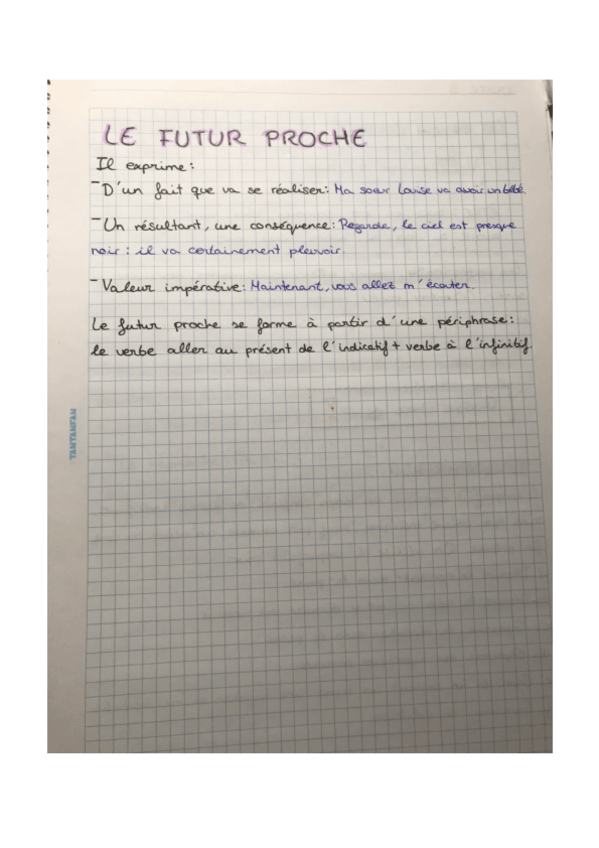 LE FUTUR PROCHE
Il exprime:
- D'un fait que va se réaliser: Ma soeur Louise va avoir un bébé.
- Un résultant, une conséquence: Regarde, le ciel est presque
noir: il va certainement pleuvoir.
- Valeur impérative: Maintenant, vous allez m'écouter.
Le futur proche se forme à partir d'une périphrase:
le verbe aller au présent de l'indicatif + verbe à l'infinitif.
TANTANFAN